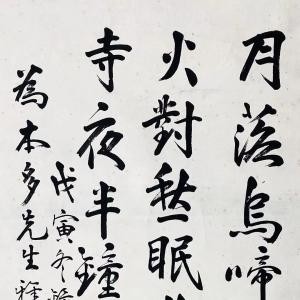 月落烏啼
火對愁眠
寺夜半鐘
戊寅冬
為本多先生雅